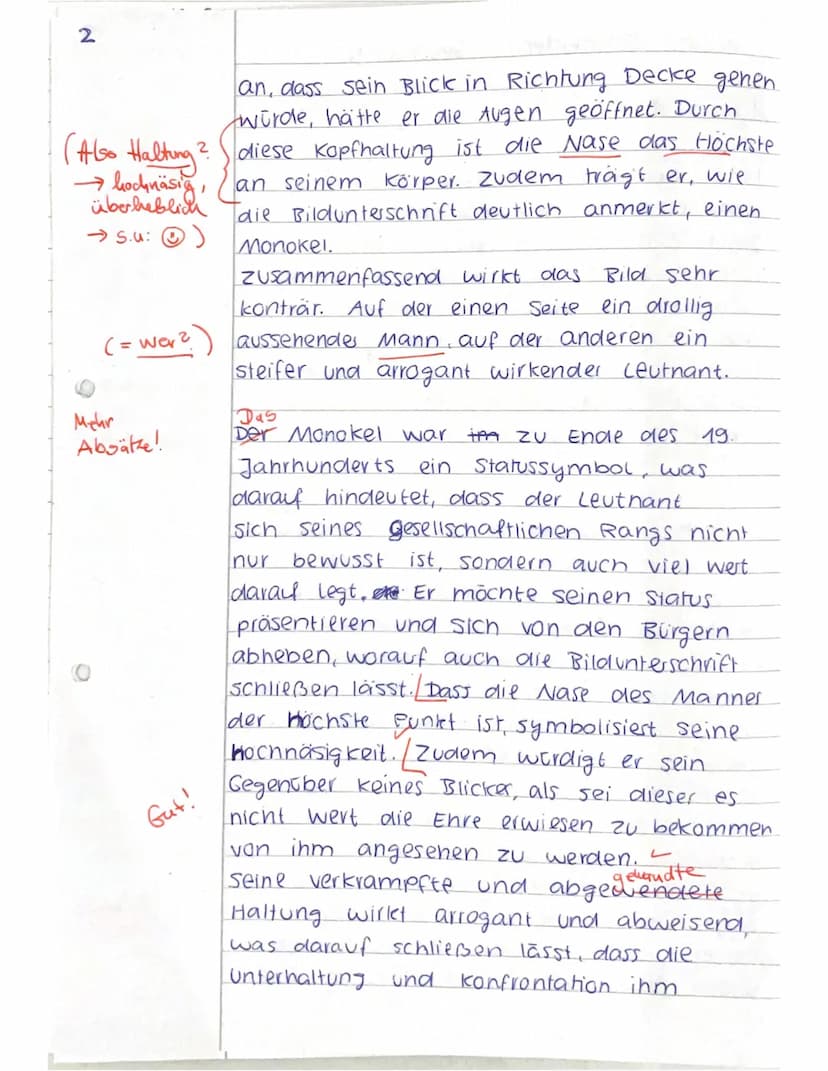 2
an, dass sein Blick in Richtung Decke gehen
würde, hätte er die Augen geöffnet. Durch
(Also Haltung?
diese Kopfhaltung ist die Nase das Höchste
→ hochnäsig,
an seinem Körper. Zudem trägt er, wie
überheblich
die Bildunterschrift deutlich anmerkt, einen
→ s.u: ☺)
Monokel.
Zusammenfassend wirkt das Bild sehr
konträr. Auf der einen Seite ein drollig
(= wer?)
aussehendes Mann, auf der anderen ein
steifer und arrogant wirkender Leutnant.
Mehr
Absätze!
Das
Der Monokel war im zu Ende des 19.
Jahrhunderts ein Statussymbol, was
darauf hindeutet, dass der Leutnant
sich seines gesellschaftlichen Rangs nicht
nur bewusst ist, sondern auch viel Wert
darauf legt. Er möchte seinen Status
präsentieren und sich von den Bürgern
abheben, worauf auch die Bildunterschrift
schließen lässt. Dass die Nase des Mannes
der höchste Punkt ist, symbolisiert seine
Hochnäsigkeit. Zudem würdigt er sein
Gegenüber keines Blickes, als sei dieser es
Gut!
nicht Wert die Ehre erwiesen zu bekommen
von ihm angesehen zu werden.
gewandte
Seine verkrampfte und abgewendete
Haltung wirkt arrogant und abweisend,
was darauf schließen lässt, dass die
Unterhaltung und Konfrontation ihm